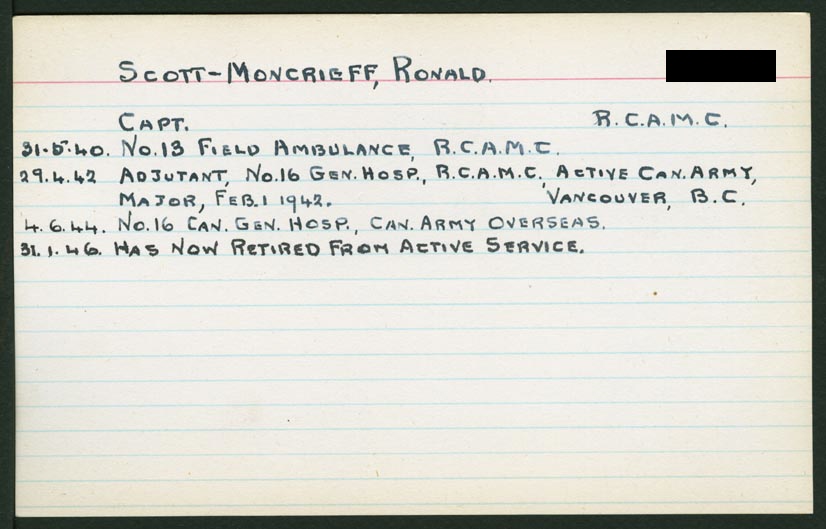 SCOTT-MONCRIEFF, RONALD.
CAPT. R.C.A.M.C.
31.5.40. NO.13 FIELD AMBULANCE, R.C.A.M.C.
29.4.42 ADJUTANT, NO.16 GEN. HOSP., R.C.A.M.C. ACTIVE CAN. ARMY,
MAJOR, FEB. 1 1942. VANCOUVER, B.C.
4.6.44. NO.16 CAN. GEN. HOSP., CAN. ARMY OVERSEAS.
31.1.46. HAS NOW RETIRED FROM ACTIVE SERVICE.